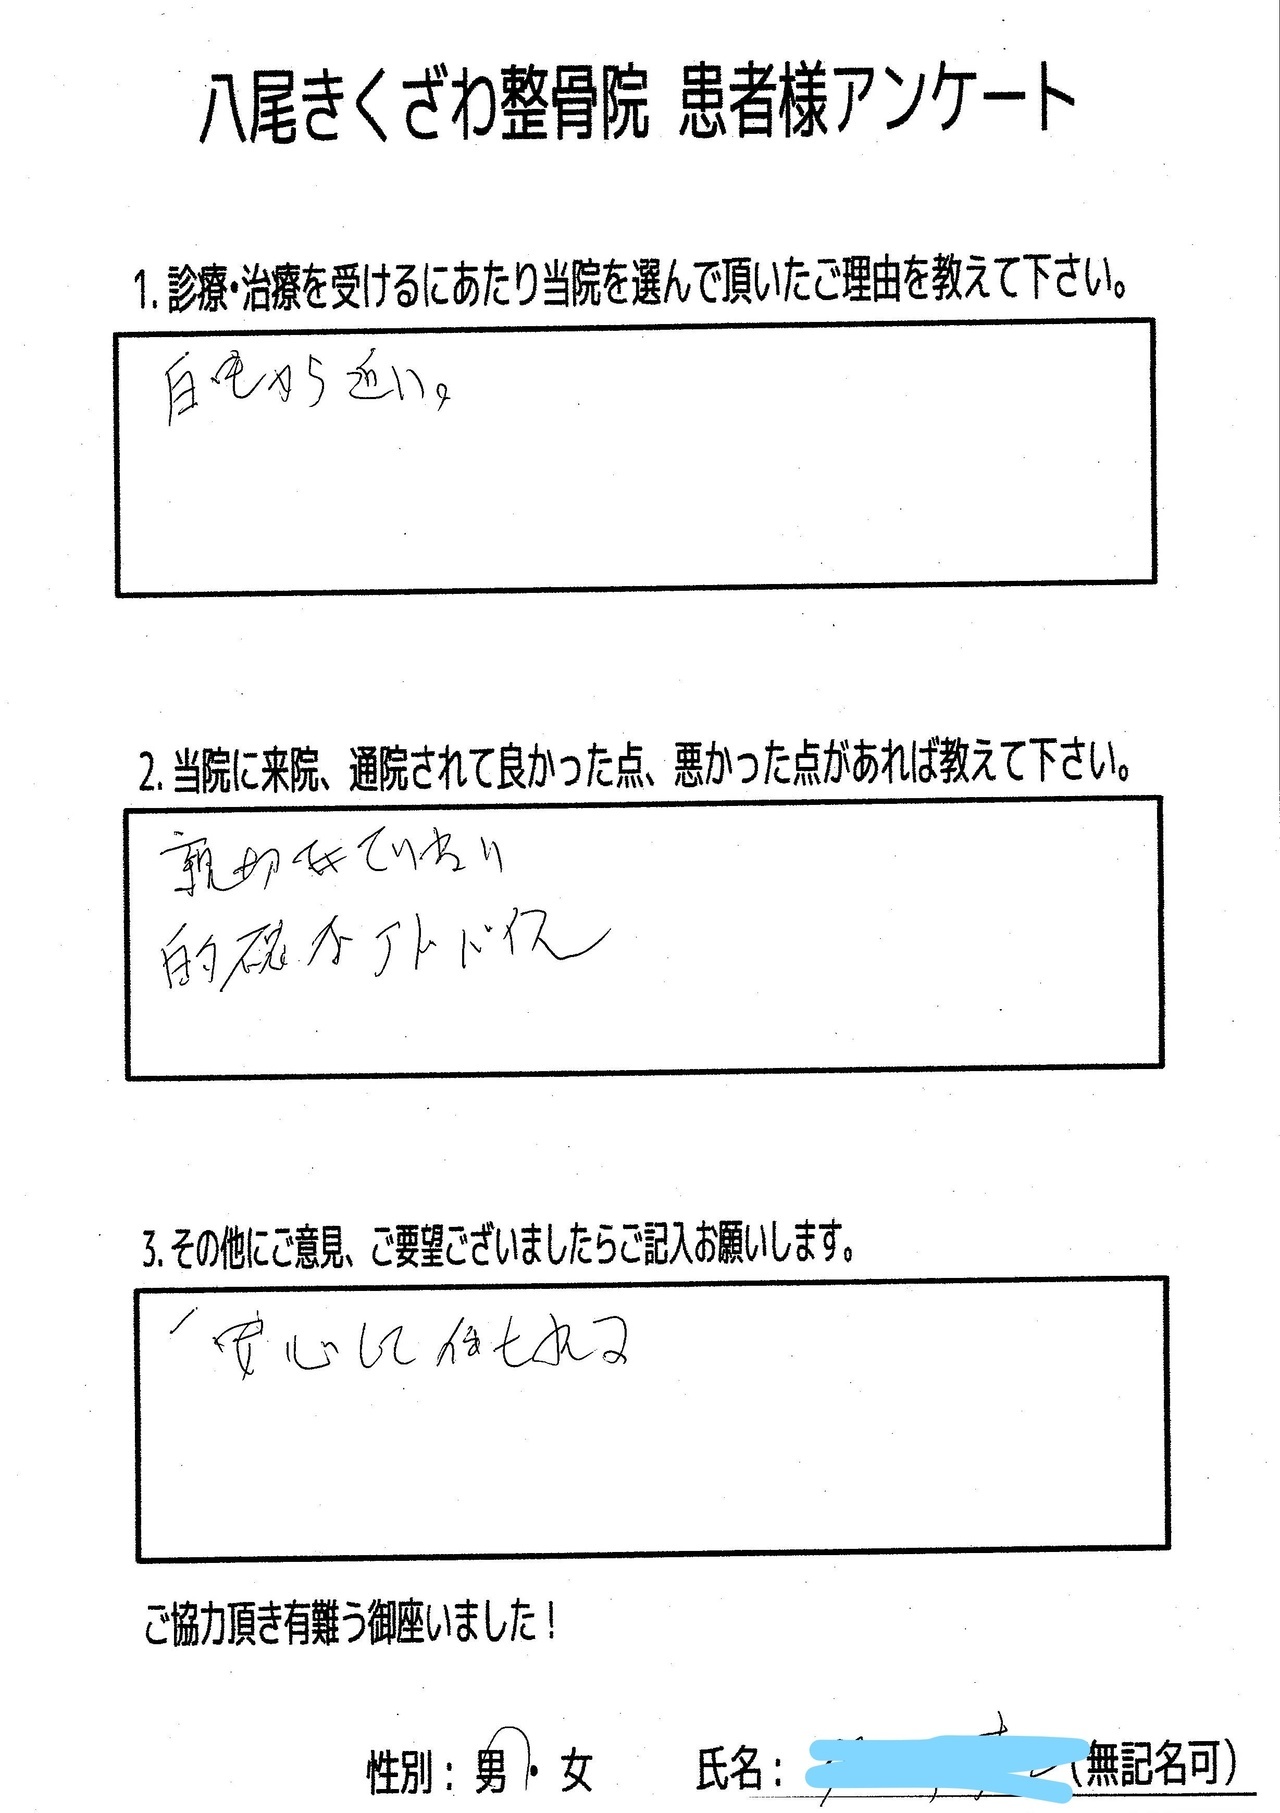 八尾きくざわ整骨院 患者様アンケート
1. 診療・治療を受けるにあたり当院を選んで頂いたご理由を教えて下さい。
自宅から近い。
2. 当院に来院、通院されて良かった点、悪かった点があれば教えて下さい。
親切
的確なアドバイス
3. その他にご意見、ご要望ございましたらご記入お願いします。
安心して任せれる
ご協力頂き有難う御座いました！
性別： 男 ・ 女 氏名： （無記名可）